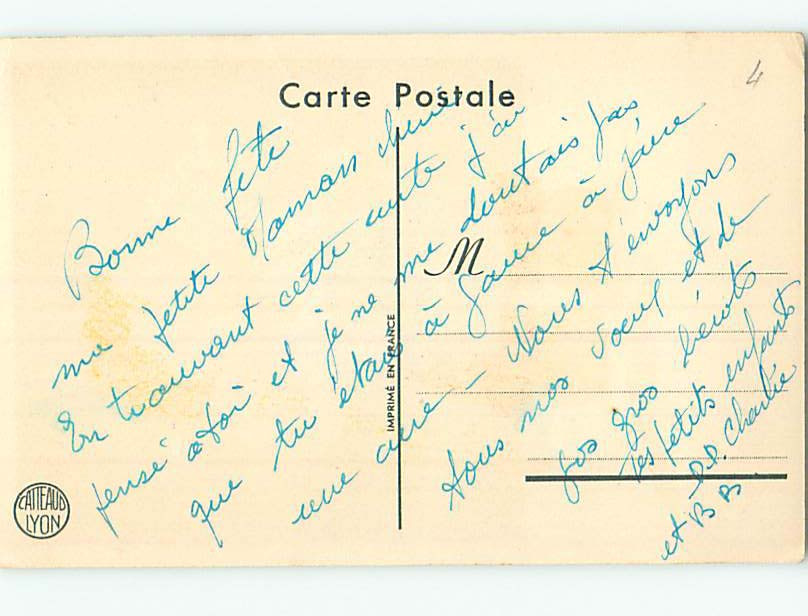 Carte Postale
4
Bonne fête
ma petite Maman chérie
En trouvant cette carte j'ai
pensé à toi et je ne me doutais pas
que tu étais à jaune à faire
une cure - Nous t'envoyons
tous nos voeux et de
gros bécots
tes petits enfants
P.P. Charlie
et BB.
M
IMPRIMÉ EN FRANCE
CATTEAUD
LYON